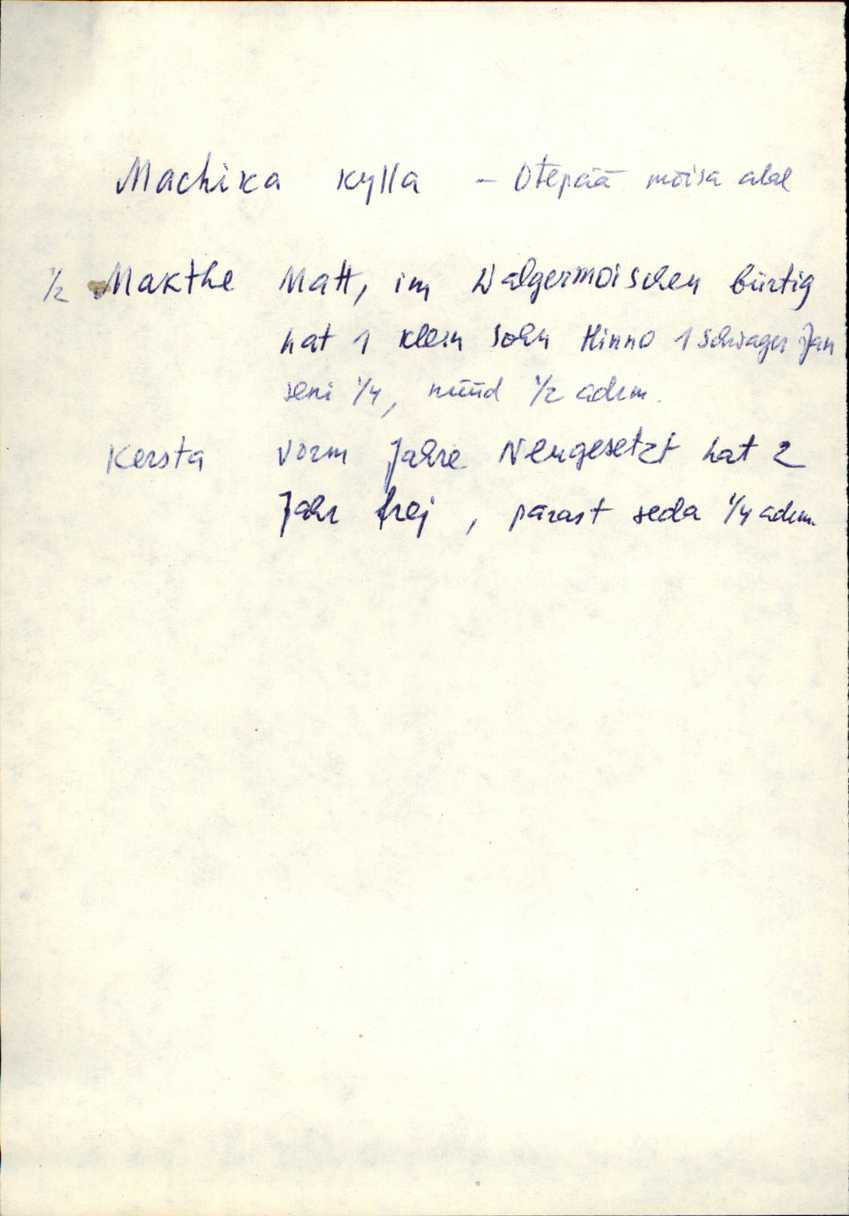 Machika Kylla - Otepää mõisa alal
1/2 Makthe Matt, im Walgermoischen bürtig
hat 1 klein Sohn Hinno 1 Schwager Jan
seni 1/4, nüüd 1/2 adrm.
Kersta Vorm Jahre Neugesetzt hat 2
Jahr frej, pärast seda 1/4 adrm.